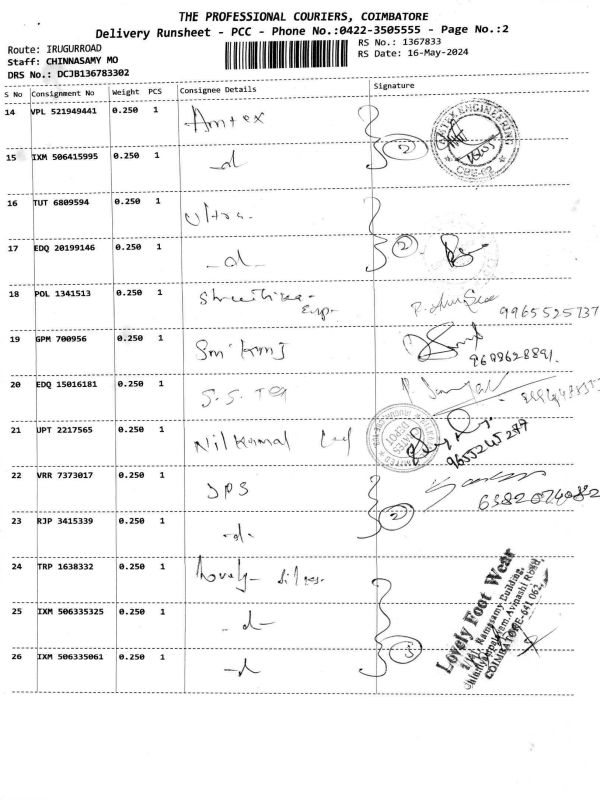 THE PROFESSIONAL COURIERS, COIMBATORE
Delivery Runsheet - PCC - Phone No.:0422-3505555 - Page No.:2
Route: IRUGURROAD
RS No.: 1367833
Staff: CHINNASAMY MO
RS Date: 16-May-2024
DRS No.: DCJB136783302
S No Consignment No Weight PCS Consignee Details Signature
14 VPL 521949441 0.250 1 Amtex
15 IXM 506415995 0.250 1 -d 2
16 TUT 6809594 0.250 1 Ultra-
17 EDQ 20199146 0.250 1 -d- 2
18 POL 1341513 0.250 1
9965525737
19 GPM 700956 0.250 1
9699628891.
20 EDQ 15016181 0.250 1
21 UPT 2217565 0.250 1 Nilkamal Ltd
9655245277
22 VRR 7373017 0.250 1 DPS
6382074082
23 RJP 3415339 0.250 1 -d- 2
24 TRP 1638332 0.250 1 Lovely-
25 IXM 506335325 0.250 1 -d-
26 IXM 506335061 0.250 1 -d 3
Lovely Foot Wear
Ramasamy Building,
Avinashi Road,
COIMBATORE-641 062.